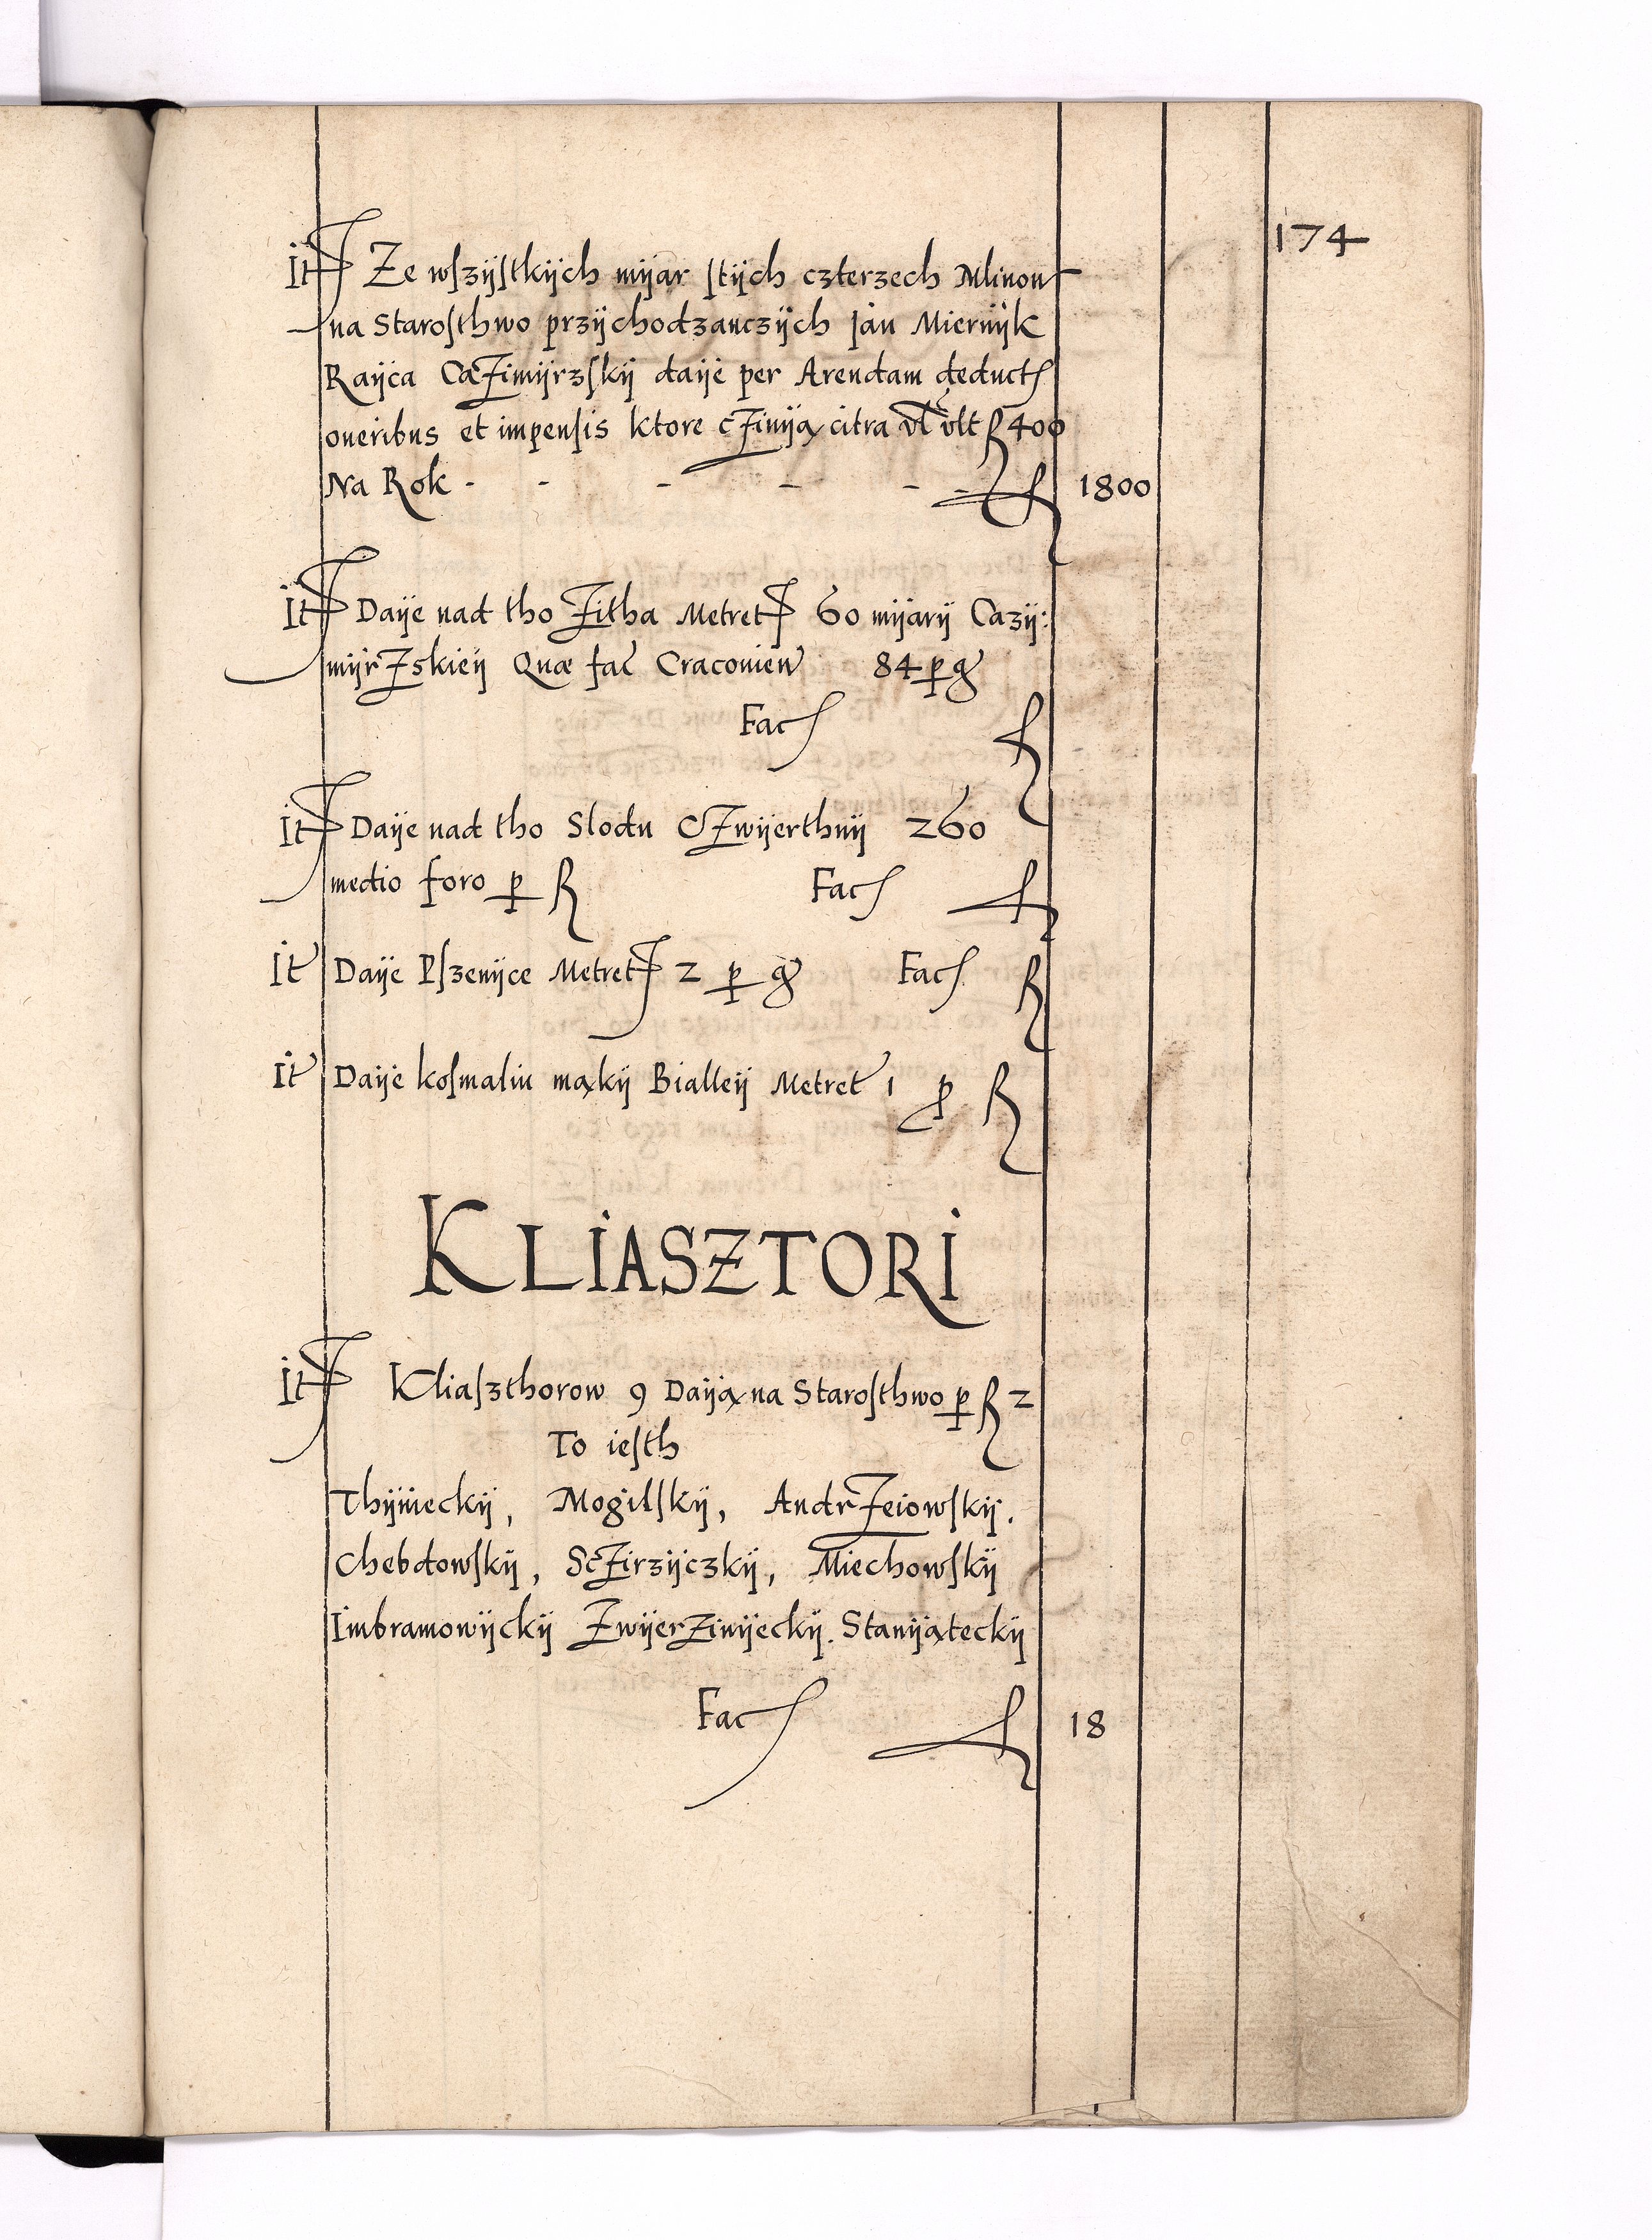 174
It Ze wſzÿſtkÿch mÿar ſtÿch czterzech Mlinow
na Staroſthwo przÿchodzanczÿch Jan Miernÿk
Raÿca Cazimÿrzſkÿ daÿe per Arendam deduct
oneribus et impenſis ktore czinÿą citra vl vlt fl 400
Na Rok - - - - - - fl 1800
It Daÿe nad tho Zitha Metret 60 mÿarÿ Cazÿ:
mÿrzskieÿ Quæ fac Craconien 84 p g
Fac fl
It Daÿe nad tho Slodu Czwÿerthnÿ 260
medio foro p fl Fac fl
It Daÿe Pſzenÿce Metret 2 p g Fac fl
It Daÿe koſmaliu mąkÿ Bialleÿ Metret 1 p fl
KLIASZTORI
It Kliaſzthorow 9 Daÿą na Staroſthwo p fl 2
To ieſth
Thÿnieckÿ, Mogilſkÿ, Andrzeiowſkÿ.
Chebdowſkÿ, Sczirzÿczkÿ, Miechowſkÿ
Imbramowÿckÿ Zwÿerzinÿeckÿ. Stanÿąteckÿ
Fac fl 18